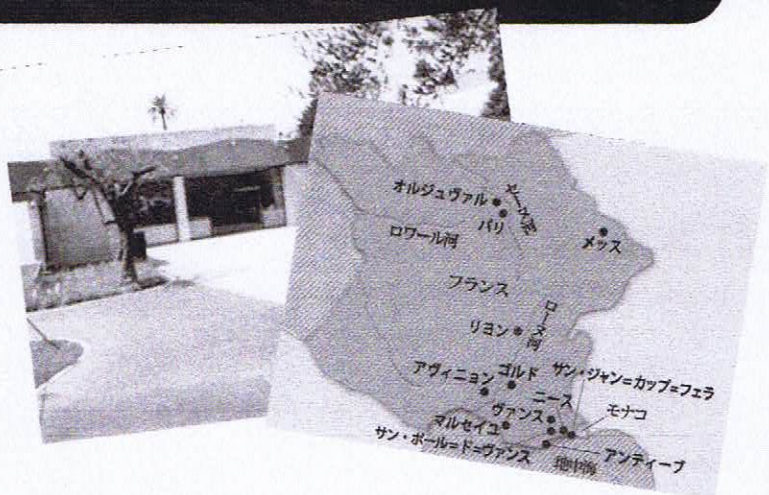 オルジュヴァル
パリ
セーヌ河
メッス
ロワール河
フランス
ローヌ河
リヨン
ゴルド
サン・ジャン=カップ=フェラ
アヴィニョン
ニース
ヴァンス
モナコ
マルセイユ
サン・ポール=ド=ヴァンス
アンティーブ
地中海